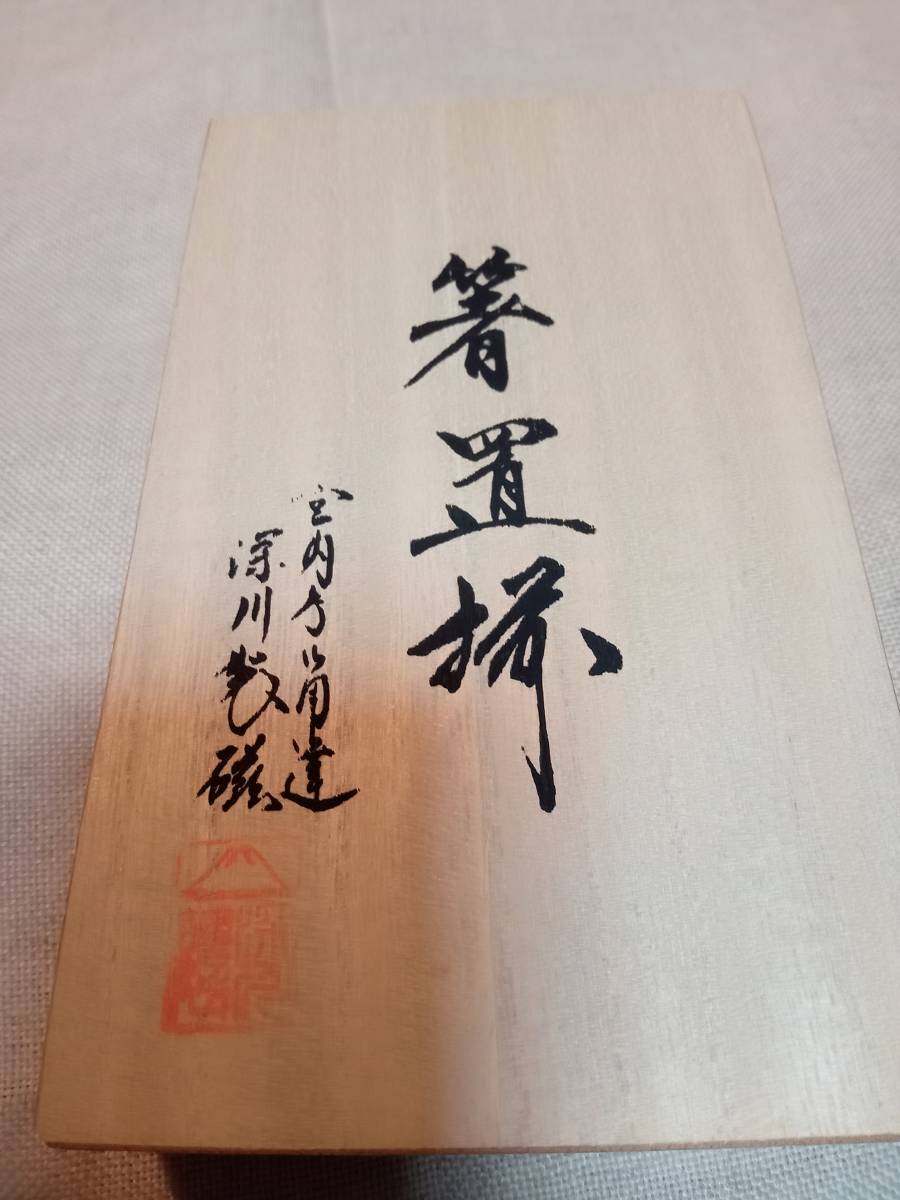 箸置揃
宮内庁御用達
深川製磁